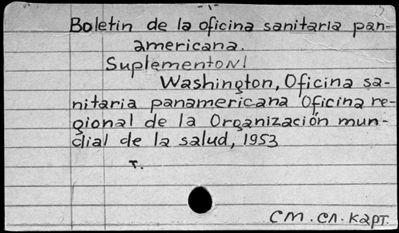 Boletin de la oficina sanitaria pan-
americana.
Suplemento N1
Washington, Oficina sa-
nitaria panamericana Oficina re-
gional de la Organización mun-
dial de la salud, 1953
т.
См. сл. карт.